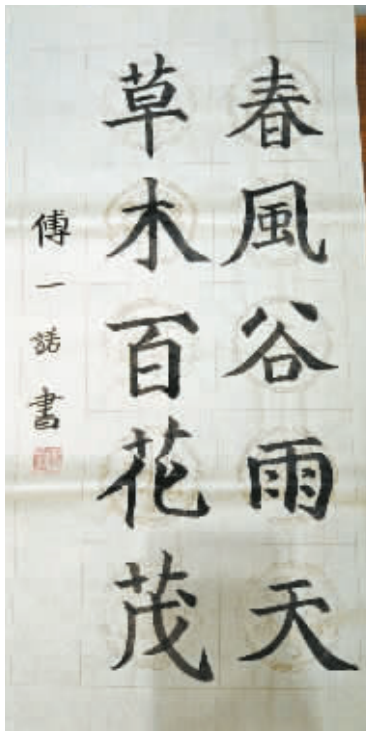 春風谷雨天
草木百花茂
傅一諾書